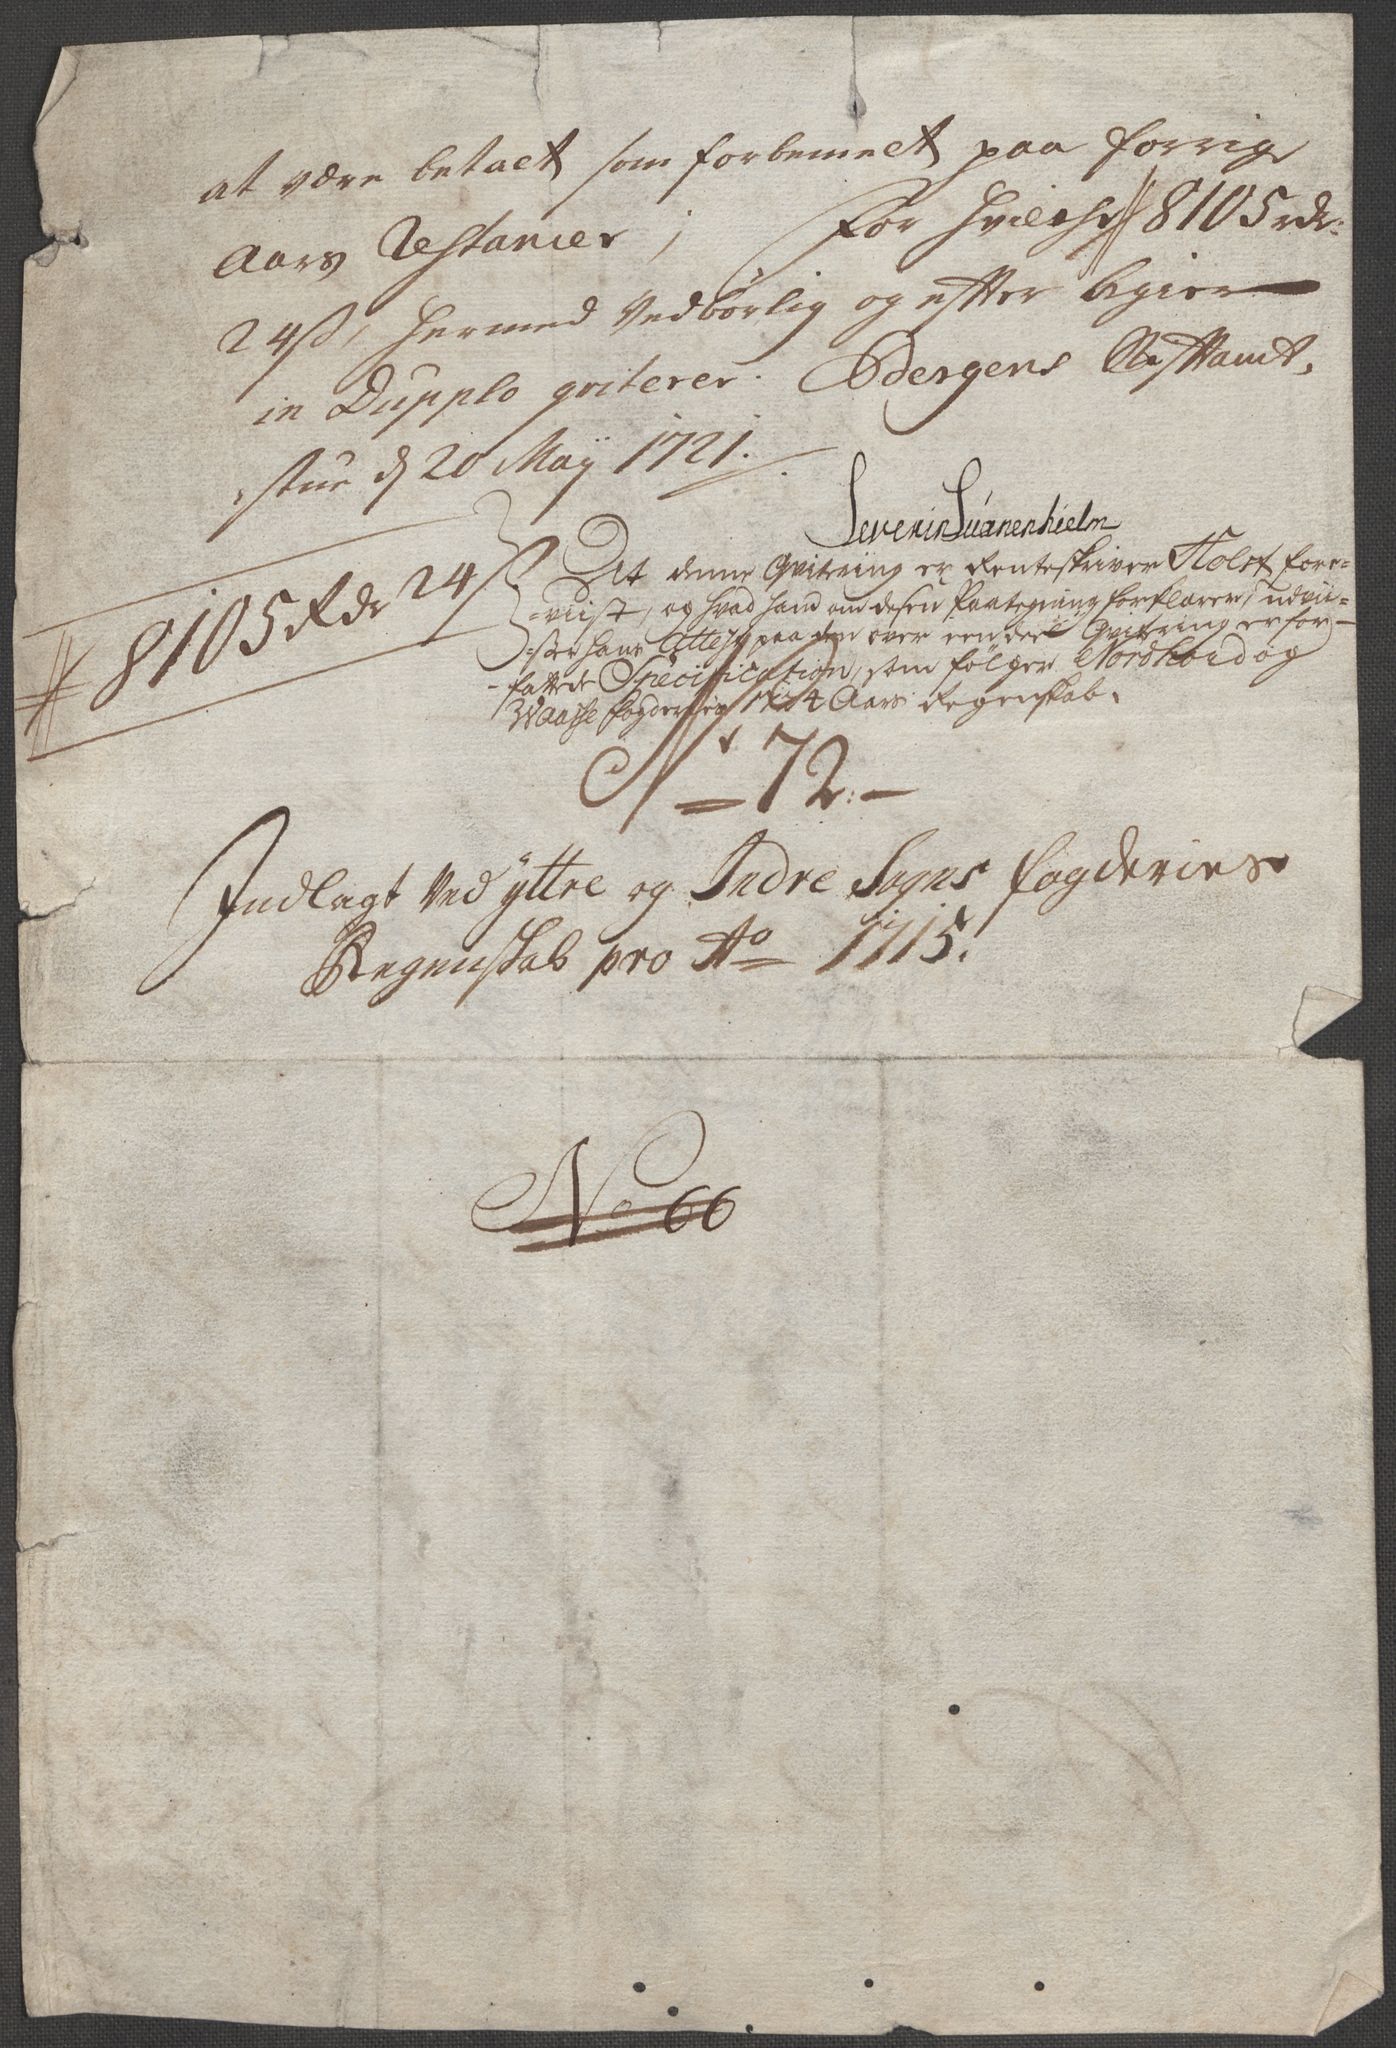 at være betaelt som forbemeelt paa forrige
Aars Restancer; For hvilche # 8105 rdr:
24 ß, hermed Vedbørlig og effter begier
in Dupplo qviterer. Bergens Stifftamt-
stue d 20 Maÿ 1721.
Severin Suanenhielm
# 8105 Rdr 24 ß
At denne Qvitering er Renteskriver Holst fore-
-viist, og hvad hand om desen Paategning forklarer, udvii-
-ser hans Attest paa den over een deel Qvitering er for-
-fattede Specification, som følger Nordhord og
Waasse fogderies 1714 Aars Regenskab.
N 72.
Indlagt Ved ÿttre og Indre Sogns fogderies
Regenskab pro Ao 1715.
No 66